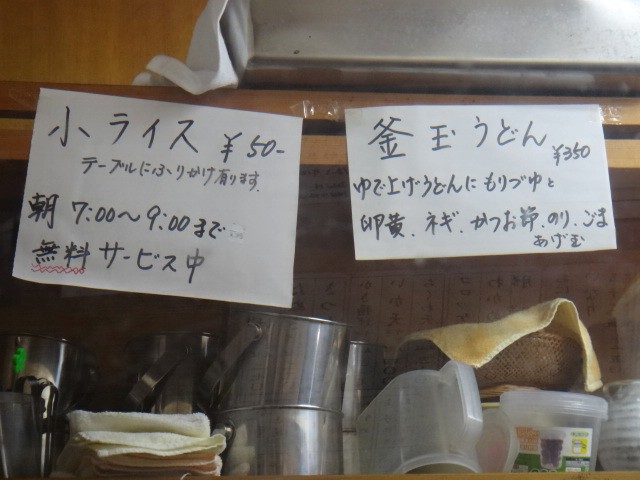 小ライス ¥50-
テーブルにふりかけ有ります.
朝 7:00〜9:00まで
無料サービス中
釜玉うどん ¥350
ゆで上げうどんにもりづゆと
卵黄.ネギ.かつお節.のり.ごま
あげ玉